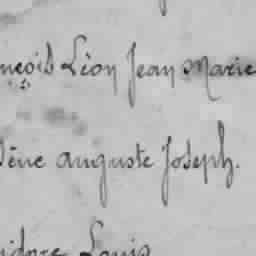 nçois Léon Jean Marie
ène Auguste Joseph.
idore Louis